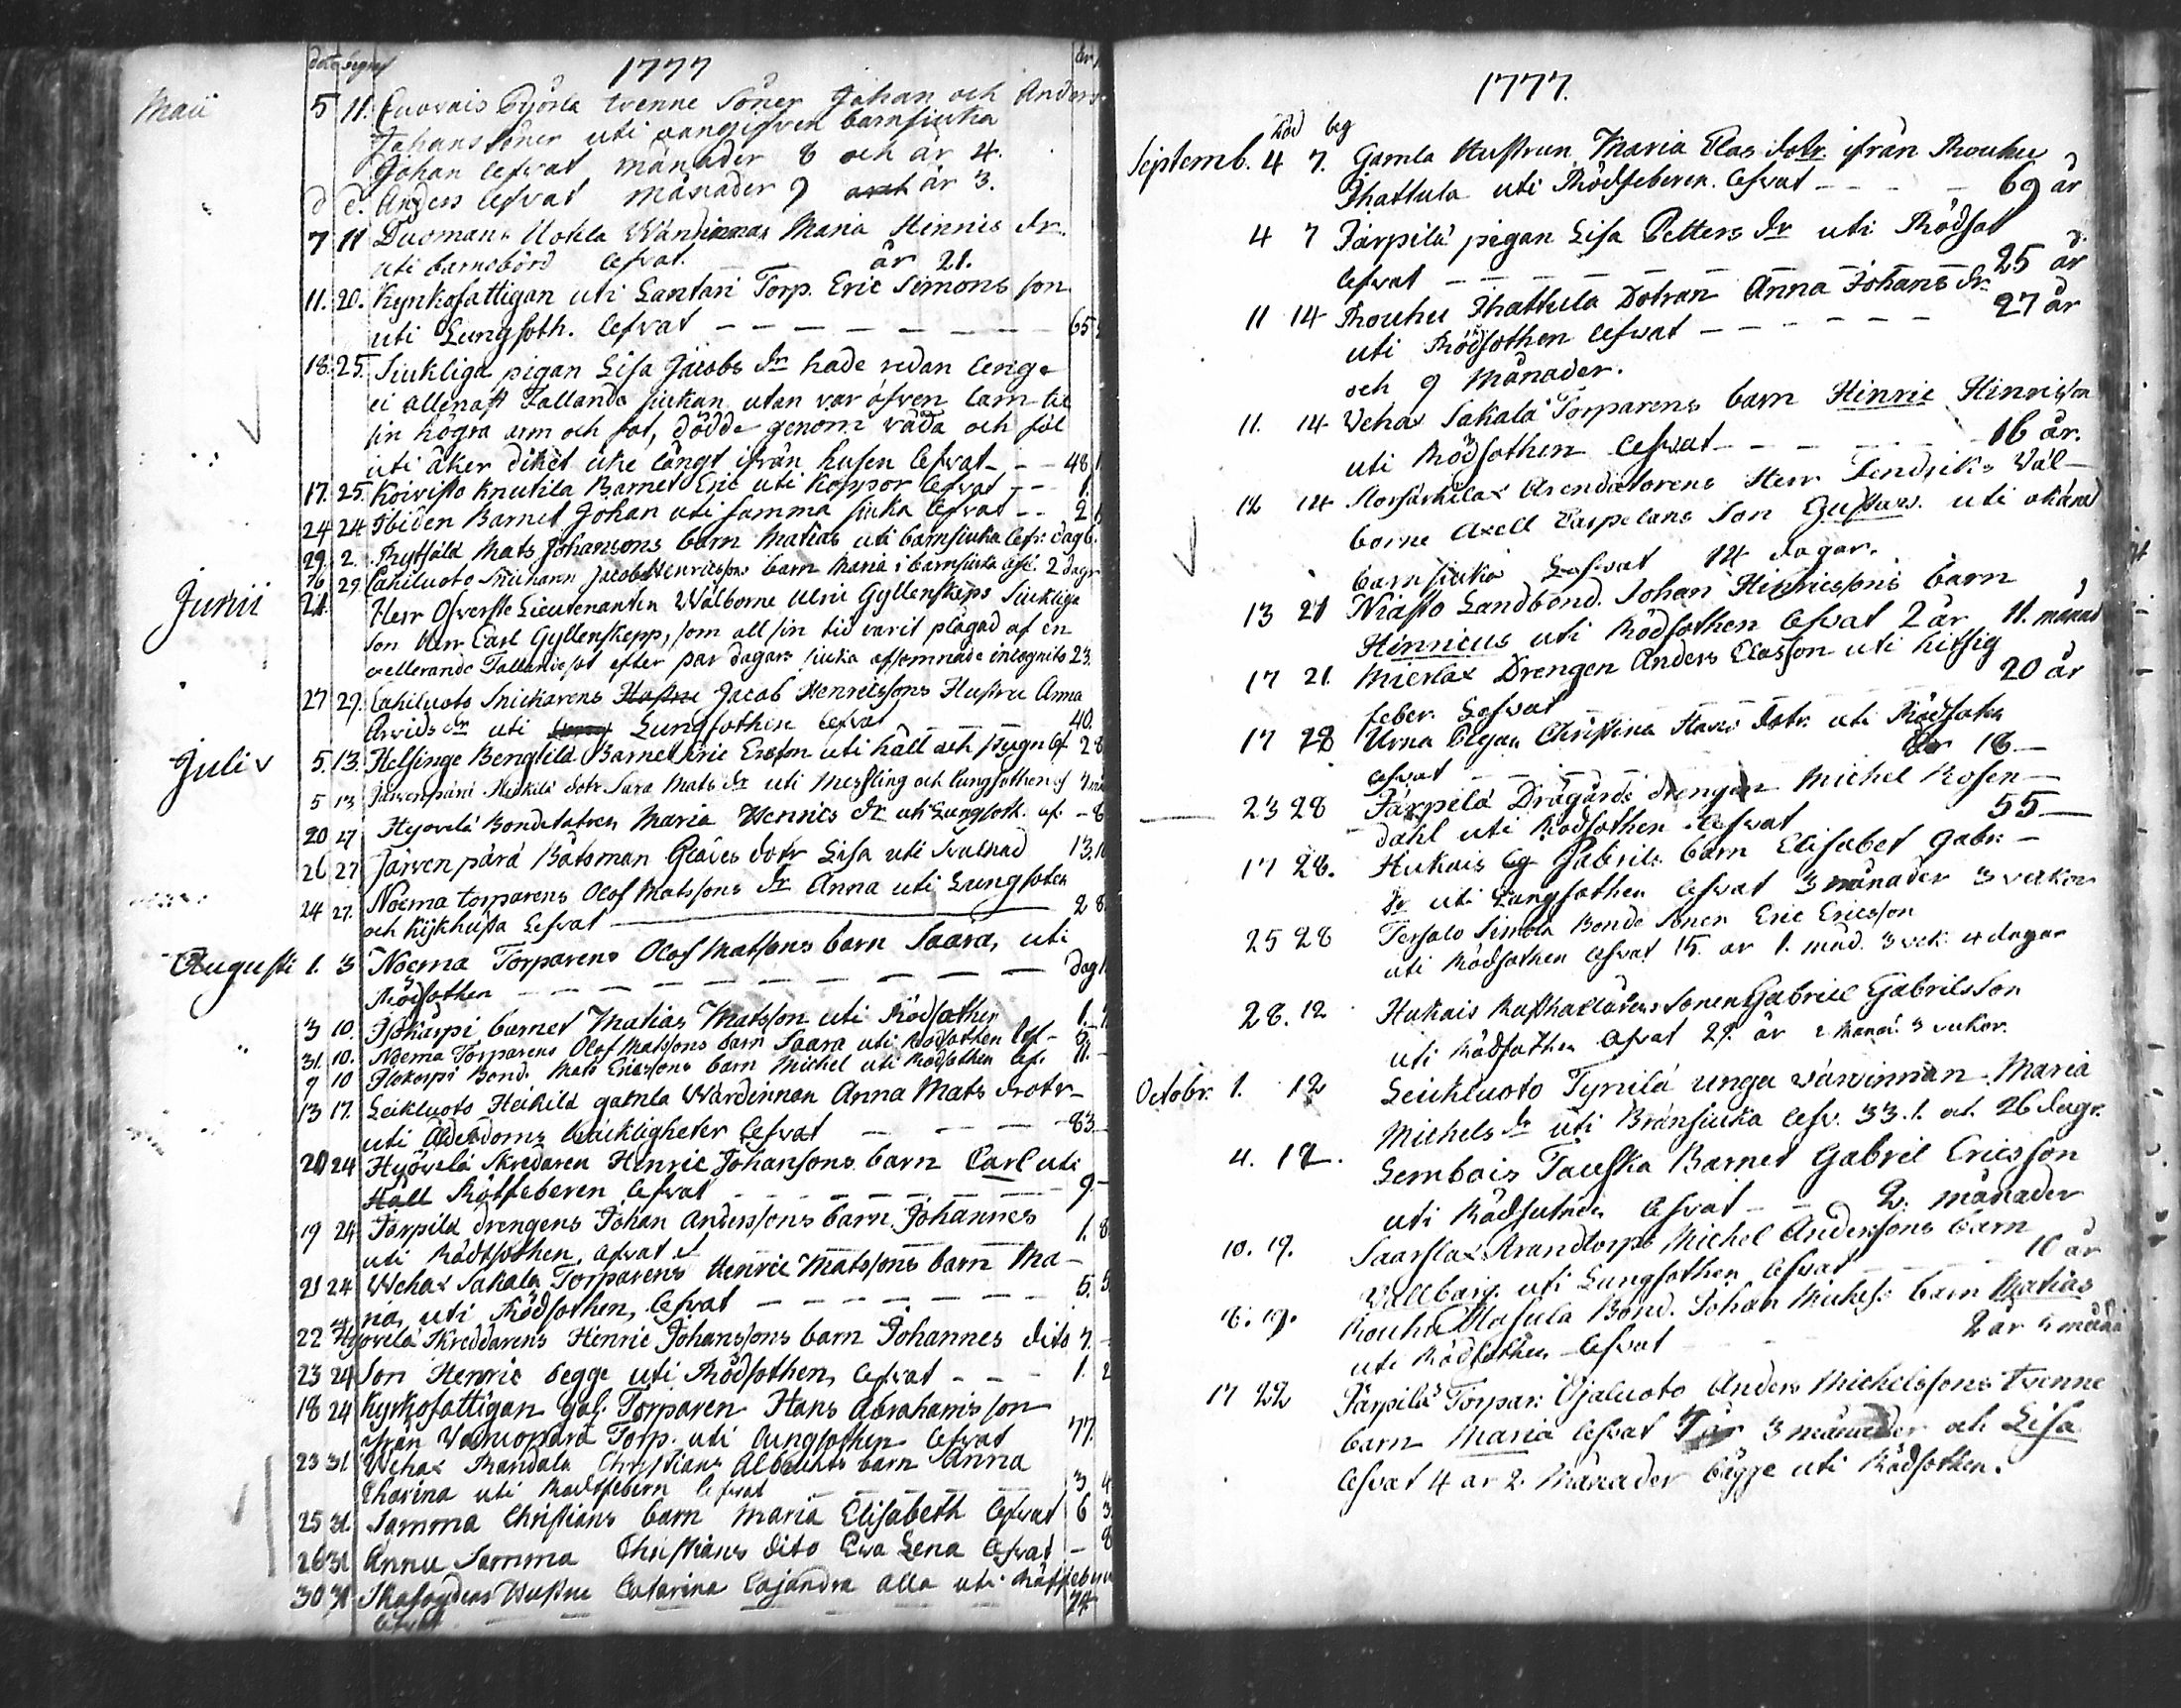 död begraf 1777 år
Maii 5 11. Cuovais Pyörla tvenne Söner Johan och Anders
Johans Söner uti oangifven barnsiuka
Johan lefvat månader 8 och år 4.
d d. Anders lefvat månader 9 år 3.
7 11 Duomans Uokla Wändinnan Maria Hinrics dr.
uti barnsbörd lefvat. år 21.
11. 20. Kyrkofattigan uti Santari Torp. Eric Simons son
uti Lungsoth. lefvat 65
18. 25. Siukliga pigan Lisa Jacobs dr hade redan lenge
ei allenast Fallande siukan utan var öfven lam til
sin högra arm och fot, dödde genom våda och föl
uti åker diket icke långt ifrån husen lefvat 48
17. 25. Koivisto Knutila Barnet Eric uti Koppor lefvat 1.
24 24 Ibiden Barnet Johan uti samma siuka lefvat 2
29. 2. Mats Johansons barn Matias uti barnsiuka lefv. dag 6.
Junii 16 29. Lahiluoto Snickaren Jacob Henricssons barn Maria i barnsiuka lefv. 2 dagr
21. Herr Öfverste Lieutenanten Wälborne Ulric Gyllenskeps Siukliga
son Herr Carl Gyllenskepp, som all sin tid varit plågad af en
vellerande Fallandesot efter par dagars siuka afsomnade incognito 23.
27 29. Lahiluoto Snickarens Jacob Henricssons Hustru Anna
Arvids dr uti Lungsothen lefvat 40.
Juliv 5. 13. Helsinge Bengtild Barnet Eric Ericson uti håll och stygn lef 28
5 13 Järvenpäri Heikilä dotr Sara Mats dr uti Messling och lungsothen
20 27 Hyövelä Bondedotren Maria Henrics dr uti Lungsoth. lef. 8
26 27 Järvenpärä Båtsman Gråbes dotr Lisa uti Svulnad 13.
24 27. Noema torparens Olof Matssons dr Anna uti Lungsoten
och Kijkhusta Lefvat 2 8
Augusti 1. 3 Noema Torparens Olof Matsons barn Saara, uti
Rödsothen dag 1
3 10. Isokärpi barnet Matias Matsson uti Rödsothen 1.
31. 10. Noema Torparens Olof Matssons barn Saara uti Rödsothen lef 5
9 10 Isokorpi Bond. Mats Ericssons barn Michel uti Rödsothen lef. 11.
13 17. Leikluoto Heikilä gamla Wärdinnan Anna Mats Dotr
uti Ålderdoms bräckligheter lefvat 83
20 24 Hyövelä Skredaren Hinric Johansons barn Carl uti
Håll Rötfeberen lefvat 9.
19 24 Järpilä Drengens Johan Anderssons barn Johannes
uti Rödsothen, lefvat 1. 8
21 24 Wehax Sakala Torparens Henric Matssons barn Ma-
ria, uti Rödsothen, lefvat 5. 5
22 Hyövelä Skreddarens Hinric Johanssons barn Johannes dito 7.
23 24 Son Henric begge uti Rödsothen, lefvat 1. 2
18 24 Kyrkofattigan gaf. Torparen Hans Abrahams son
ifrån Torp. uti lungsothen lefvat 77.
23 31 Wehax Mandala Christians Albrechts barn Anna
Charina uti Rödsfebern lefvat 3 4
25 31. Samma Christians barn Maria Elisabeth lefvat 6 3
26 31 Annu Samma Christians dito Eva Lena lefvat – 8
30 31 Skafogdens Hustru Catarina Cajandra alla uti Rötfebern
lefvat 24
1777.
död beg
Septemb. 4 7. Gamla Hustrun Maria Elas dotr. ifrån Rouhu
Thattula uti Rödfeberen. lefvat 69 år
4 7 Järpilä pigan Lisa Petters dr uti Rödsot
lefvat 25 år
11 14 Rouhu Thattula Dotran Anna Johans dr.
uti Rödsothen lefvat 27 år
och 9 Månader.
11. 14 Vehax Sakala Torparens barn Hinric Hinricsson
uti Rödsothen lefvat 16 år.
12 14 Storsarkilax Arendatorens Herr Fendrik Väl-
borne Axell Carpelans Son Gustav. uti okänd
barnsiuka Lefvat 14 dagar.
13 21 Niasto Landbond. Johan Hinricssons barn
Hinricus uti Rödsothen lefvat 2 år 11. månad
17 21. Mierlax Drengen Anders Classon uti hitsig
feber. Lefvat 20 år
17 28 Urna Pigan Christina dotr. uti Rödsoten
lefvat år 18
23 28 Järpilä Drägårds drengen Michel Rosen-
dahl uti Rödsothen lefvat 55
17 28. Hukais Gabriels barn Elisabet Gabr:
dr uti Lungsothen lefvat 3 månader 3 veckor
25 28 Tersalo Simola Bonde Sonen Eric Ericsson
uti Rödsothen lefvat 15. år 1. mnd. 3 vek. 4 dagar
28. 12 Hukais Rusthållarens Sonen Gabriel Gabrilsson
uti Rödsothen lefvat 29. år 2 Månad 3 vekor.
Octobr. 1. 12 Leikluoto Tynilä unga värdinnan Maria
Michels dr uti Bränsiuka lefv. 33. 1. och 26 dagr.
4. 12. Lembois Taufka Barnet Gabriel Ericsson
uti Rödsutnden lefvat 2. månader
10. 19. Saarslax Strandtorps Michel Anderssons barn
Vallbarg. uti Lungsothen lefvat 10 år
16. 19. Rouhu Masula Bond. Johan Michels: barn Matias
uti Rödsothen lefvat 2 år månad
17 22 Järpilä Torpar: Ojaluoto Anders Michelssons tvenne
barn Maria lefvat 7 år 3 månader och Lisa
lefvat 4 år 2. Månader bägge uti Rödsothen.